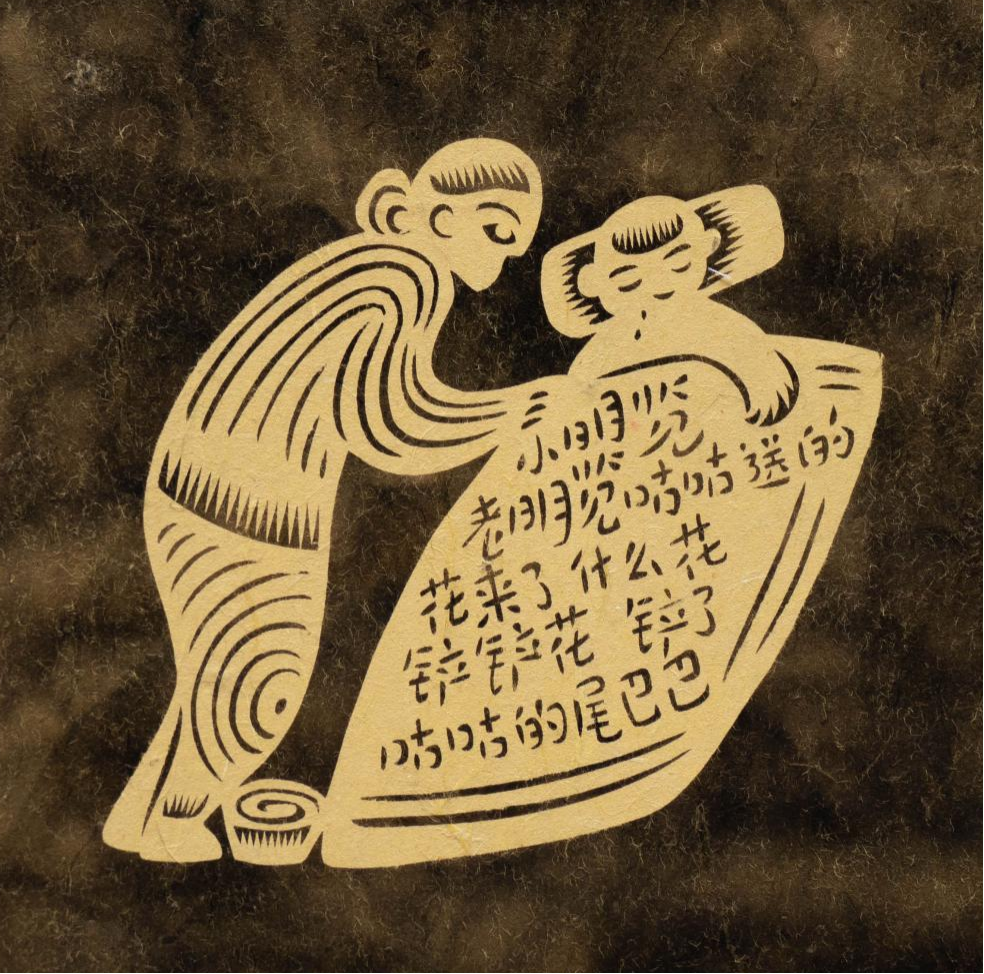 小明觉
老明觉咕咕送的
花来了 什么花
铲铲花 铲了
咕咕的尾巴巴